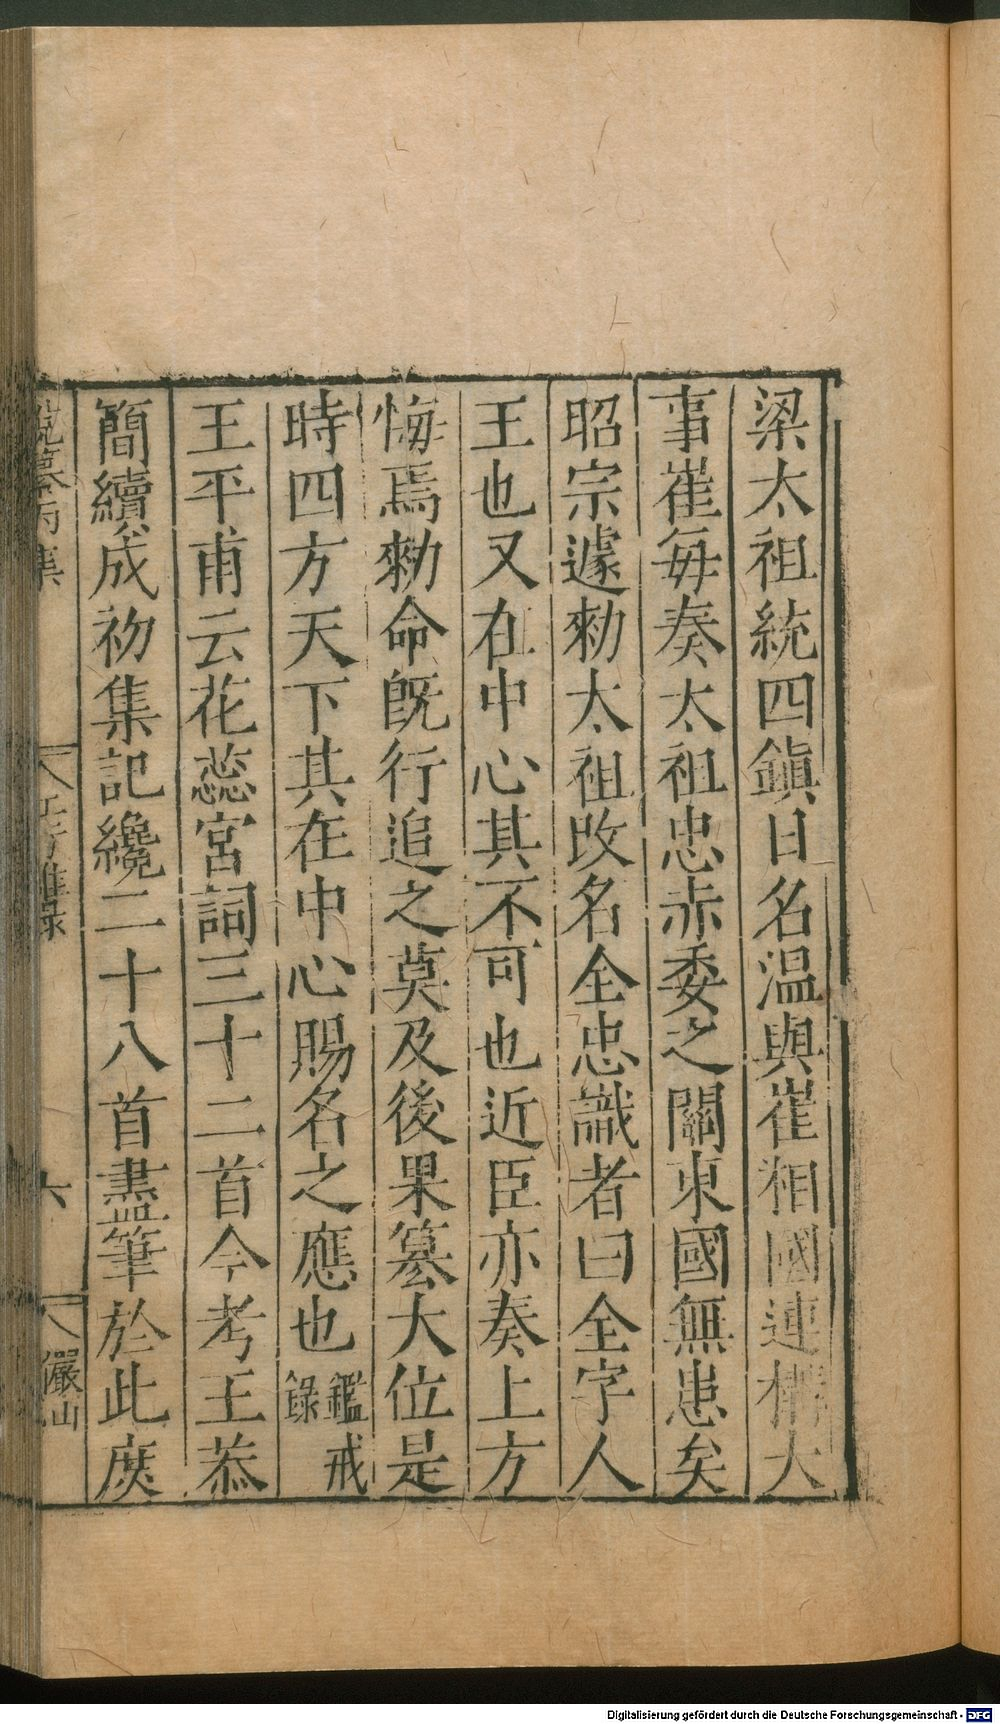 梁太祖統四鎮日名温與崔相國連構大
事崔每奏太祖忠赤委之關東國無患矣
昭宗遽勑太祖改名全忠識者曰全字人
王也又在中心其不可也近臣亦奏上方
悔焉勑命旣行追之莫及後果簒大位是
時四方天下其在中心賜名之應也鑑戒
錄
王平甫云花蕊宮詞三十二首今考王恭
簡續成初集記纔二十八首盡筆於此庻
說纂丙集
六
儼山
Digitalisierung gefördert durch die Deutsche Forschungsgemeinschaft - DFG